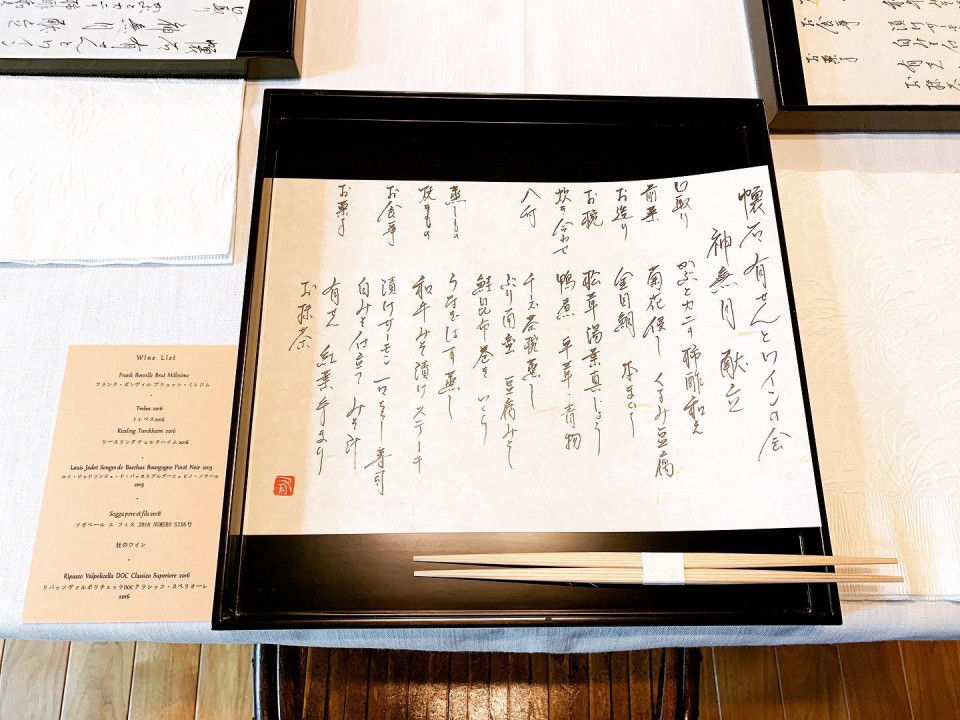 懐石 有せんとワインの会
神無月 献立
口取り かぶとカニの柿酢和え
前菜 菊花浸し くるみ豆腐
お造り 金目鯛 本まぐろ
お椀 松茸湯葉真じょう
炊き合わせ 鴨煮・早茸・青物
八寸 チーズ茶碗蒸し
ぶり南蛮 豆腐みそ
鮭昆布巻き いくら
蒸しもの うなぎはす蒸し
焼きもの 和牛みそ漬けステーキ
お食事 漬けサーモン 一口ちらし寿司
白みそ仕立て みそ汁
お菓子 有せん 紅葉手まり
お抹茶
Wine List
Frank Bonville Brut Millésime
フランク・ボンヴィル ブリュット・ミレジム
Trebez 2016
トレベス2016
Riesling Turckheim 2016
リースリング チュルクハイム 2016
Louis Jadot Songes de Bacchus Bourgogne Pinot Noir 2015
ルイ・ジャドソンジュ・ド・バッカスブルゴーニュ ピノ・ノワール
2015
Sogga pere et fils 2018
ソガペール エ フィス 2018 NUMERO SIX6号
杜のワイン
Ripasso Valpolicella DOC Classico Superiore 2016
リパッソヴァルポリチェッラDOCクラシッコ・スペリオーレ
2016